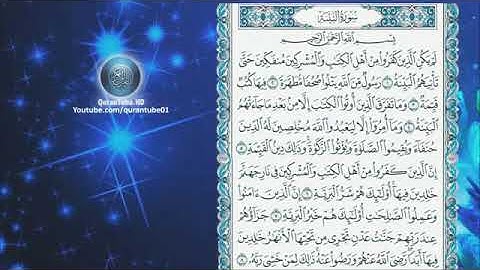 QuranTube HD
Youtube.com/qurantube01
سُورَةُ الْبَيِّنَةِ
بِسْمِ اللَّهِ الرَّحْمَٰنِ الرَّحِيمِ
لَمْ يَكُنِ الَّذِينَ كَفَرُوا مِنْ أَهْلِ الْكِتَابِ وَالْمُشْرِكِينَ مُنفَكِّينَ حَتَّىٰ
تَأْتِيَهُمُ الْبَيِّنَةُ ۝١ رَسُولٌ مِّنَ اللَّهِ يَتْلُو صُحُفًا مُّطَهَّرَةً ۝٢ فِيهَا كُتُبٌ
قَيِّمَةٌ ۝٣ وَمَا تَفَرَّقَ الَّذِينَ أُوتُوا الْكِتَابَ إِلَّا مِن بَعْدِ مَا جَاءَتْهُمُ
الْبَيِّنَةُ ۝٤ وَمَا أُمِرُوا إِلَّا لِيَعْبُدُوا اللَّهَ مُخْلِصِينَ لَهُ الدِّينَ
حُنَفَاءَ وَيُقِيمُوا الصَّلَاةَ وَيُؤْتُوا الزَّكَاةَ وَذَٰلِكَ دِينُ الْقَيِّمَةِ ۝٥
إِنَّ الَّذِينَ كَفَرُوا مِنْ أَهْلِ الْكِتَابِ وَالْمُشْرِكِينَ فِي نَارِ جَهَنَّمَ
خَالِدِينَ فِيهَا أُولَٰئِكَ هُمْ شَرُّ الْبَرِيَّةِ ۝٦ إِنَّ الَّذِينَ ءَامَنُوا
وَعَمِلُوا الصَّالِحَاتِ أُولَٰئِكَ هُمْ خَيْرُ الْبَرِيَّةِ ۝٧ جَزَاؤُهُمْ
عِندَ رَبِّهِمْ جَنَّاتُ عَدْنٍ تَجْرِي مِن تَحْتِهَا الْأَنْهَارُ خَالِدِينَ
فِيهَا أَبَدًا رَّضِيَ اللَّهُ عَنْهُمْ وَرَضُوا عَنْهُ ذَٰلِكَ لِمَنْ خَشِيَ رَبَّهُ ۝٨